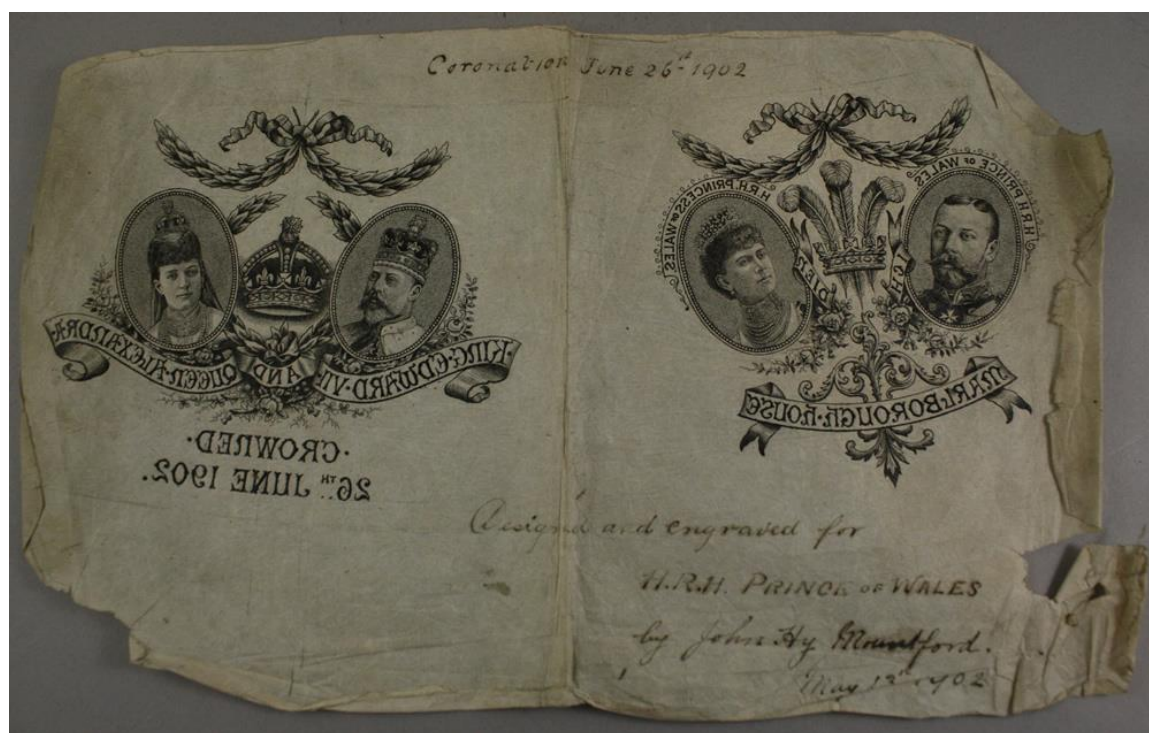 Coronation June 26th 1902
KING·EDWARD·VII·AND QUEEN·ALEXANDRA·
·CROWNED·
26TH JUNE 1902.
H.R.H. PRINCESS OF WALES
H.R.H. PRINCE OF WALES
ICH DIEN
MARLBOROUGH·HOUSE
Designed and engraved for
H.R.H. PRINCE OF WALES
by John Hy Mountford.
May 13th 1902